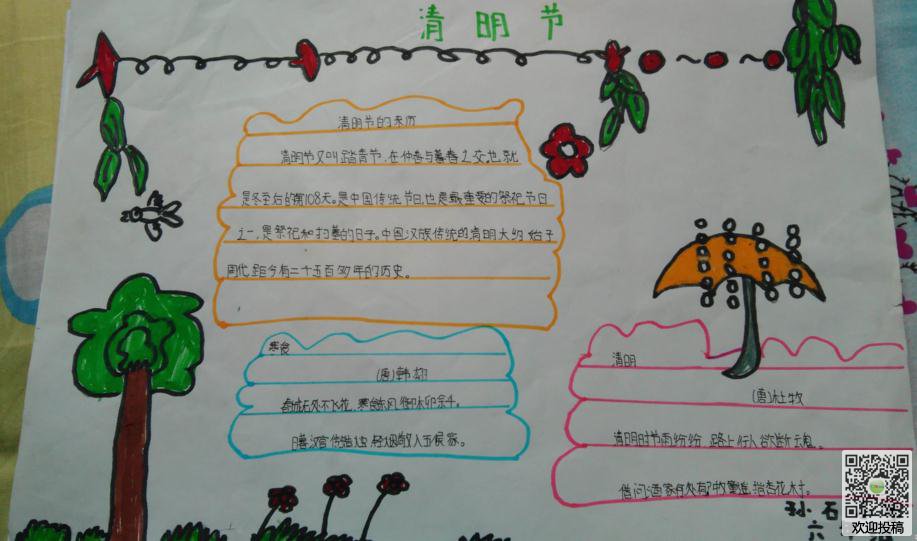 清明节
清明节的来历
清明节又叫踏青节,在仲春与暮春之交,也就
是冬至后的第108天。是中国传统节日,也是最重要的祭祀节日
之一,是祭祀和扫墓的日子。中国汉族传统的清明大约始于
周代,距今有二千五百多年的历史。
寒食
(唐)韩翃
春城无处不飞花,寒食东风御柳斜。
日暮汉宫传蜡烛,轻烟散入五侯家。
清明
(唐)杜牧
清明时节雨纷纷,路上行人欲断魂。
借问酒家何处有?牧童遥指杏花村。
孙石
六
欢迎投稿